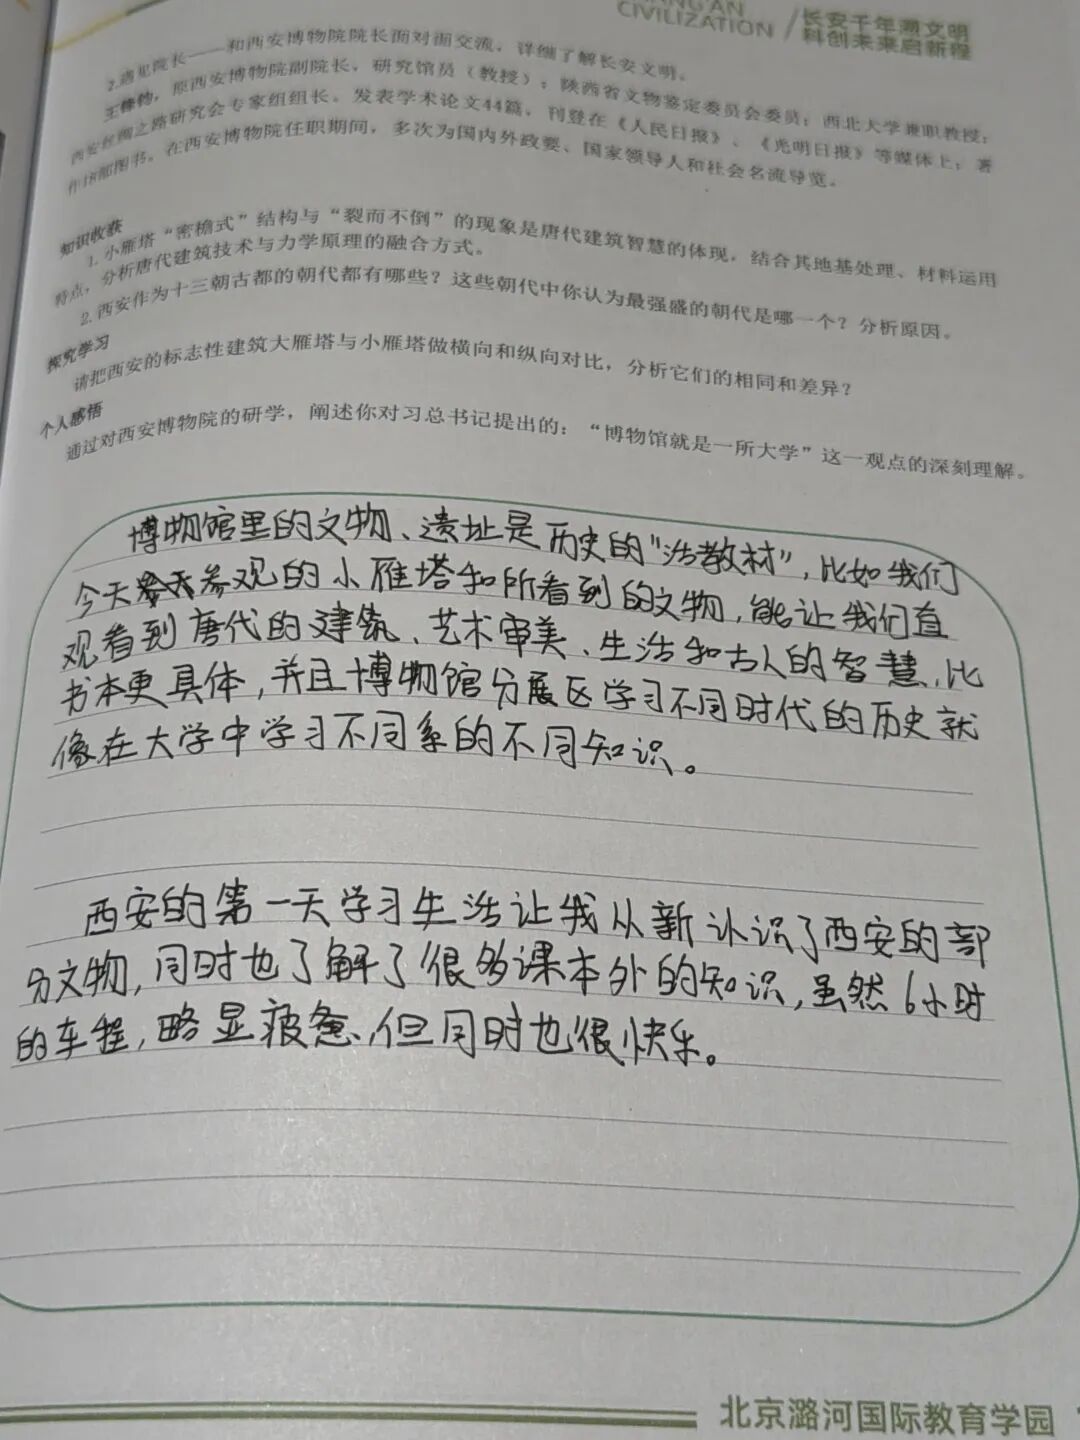 CIVILIZATION
长安千年溯文明
科创未来启新程
2.遇见院长——和西安博物院院长面对面交流，详细了解长安文明。
王锋钧，原西安博物院副院长，研究馆员（教授）；陕西省文物鉴定委员会委员；西北大学兼职教授；
西安丝绸之路研究会专家组组长。发表学术论文44篇，刊登在《人民日报》、《光明日报》等媒体上；著
作18部图书。在西安博物院任职期间，多次为国内外政要、国家领导人和社会名流导览。
知识收获
1. 小雁塔“密檐式”结构与“裂而不倒”的现象是唐代建筑智慧的体现，结合其地基处理、材料运用
特点，分析唐代建筑技术与力学原理的融合方式。
2. 西安作为十三朝古都的朝代都有哪些？这些朝代中你认为最强盛的朝代是哪一个？分析原因。
探究学习
请把西安的标志性建筑大雁塔与小雁塔做横向和纵向对比，分析它们的相同和差异？
个人感悟
通过对西安博物院的研学，阐述你对习总书记提出的：“博物馆就是一所大学”这一观点的深刻理解。
博物馆里的文物、遗址是历史的“活教材”，比如我们
今天参观的小雁塔和所看到的文物，能让我们直
观看到唐代的建筑、艺术审美、生活和古人的智慧，比
书本更具体，并且博物馆分展区学习不同时代的历史就
像在大学中学习不同系的不同知识。
西安的第一天学习生活让我从新认识了西安的部
分文物，同时也了解了很多课本外的知识，虽然6小时
的车程，略显疲惫，但同时也很快乐。
北京潞河国际教育学园